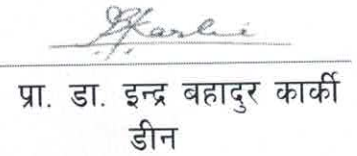 प्रा. डा. इन्द्र बहादुर कार्की
डीन